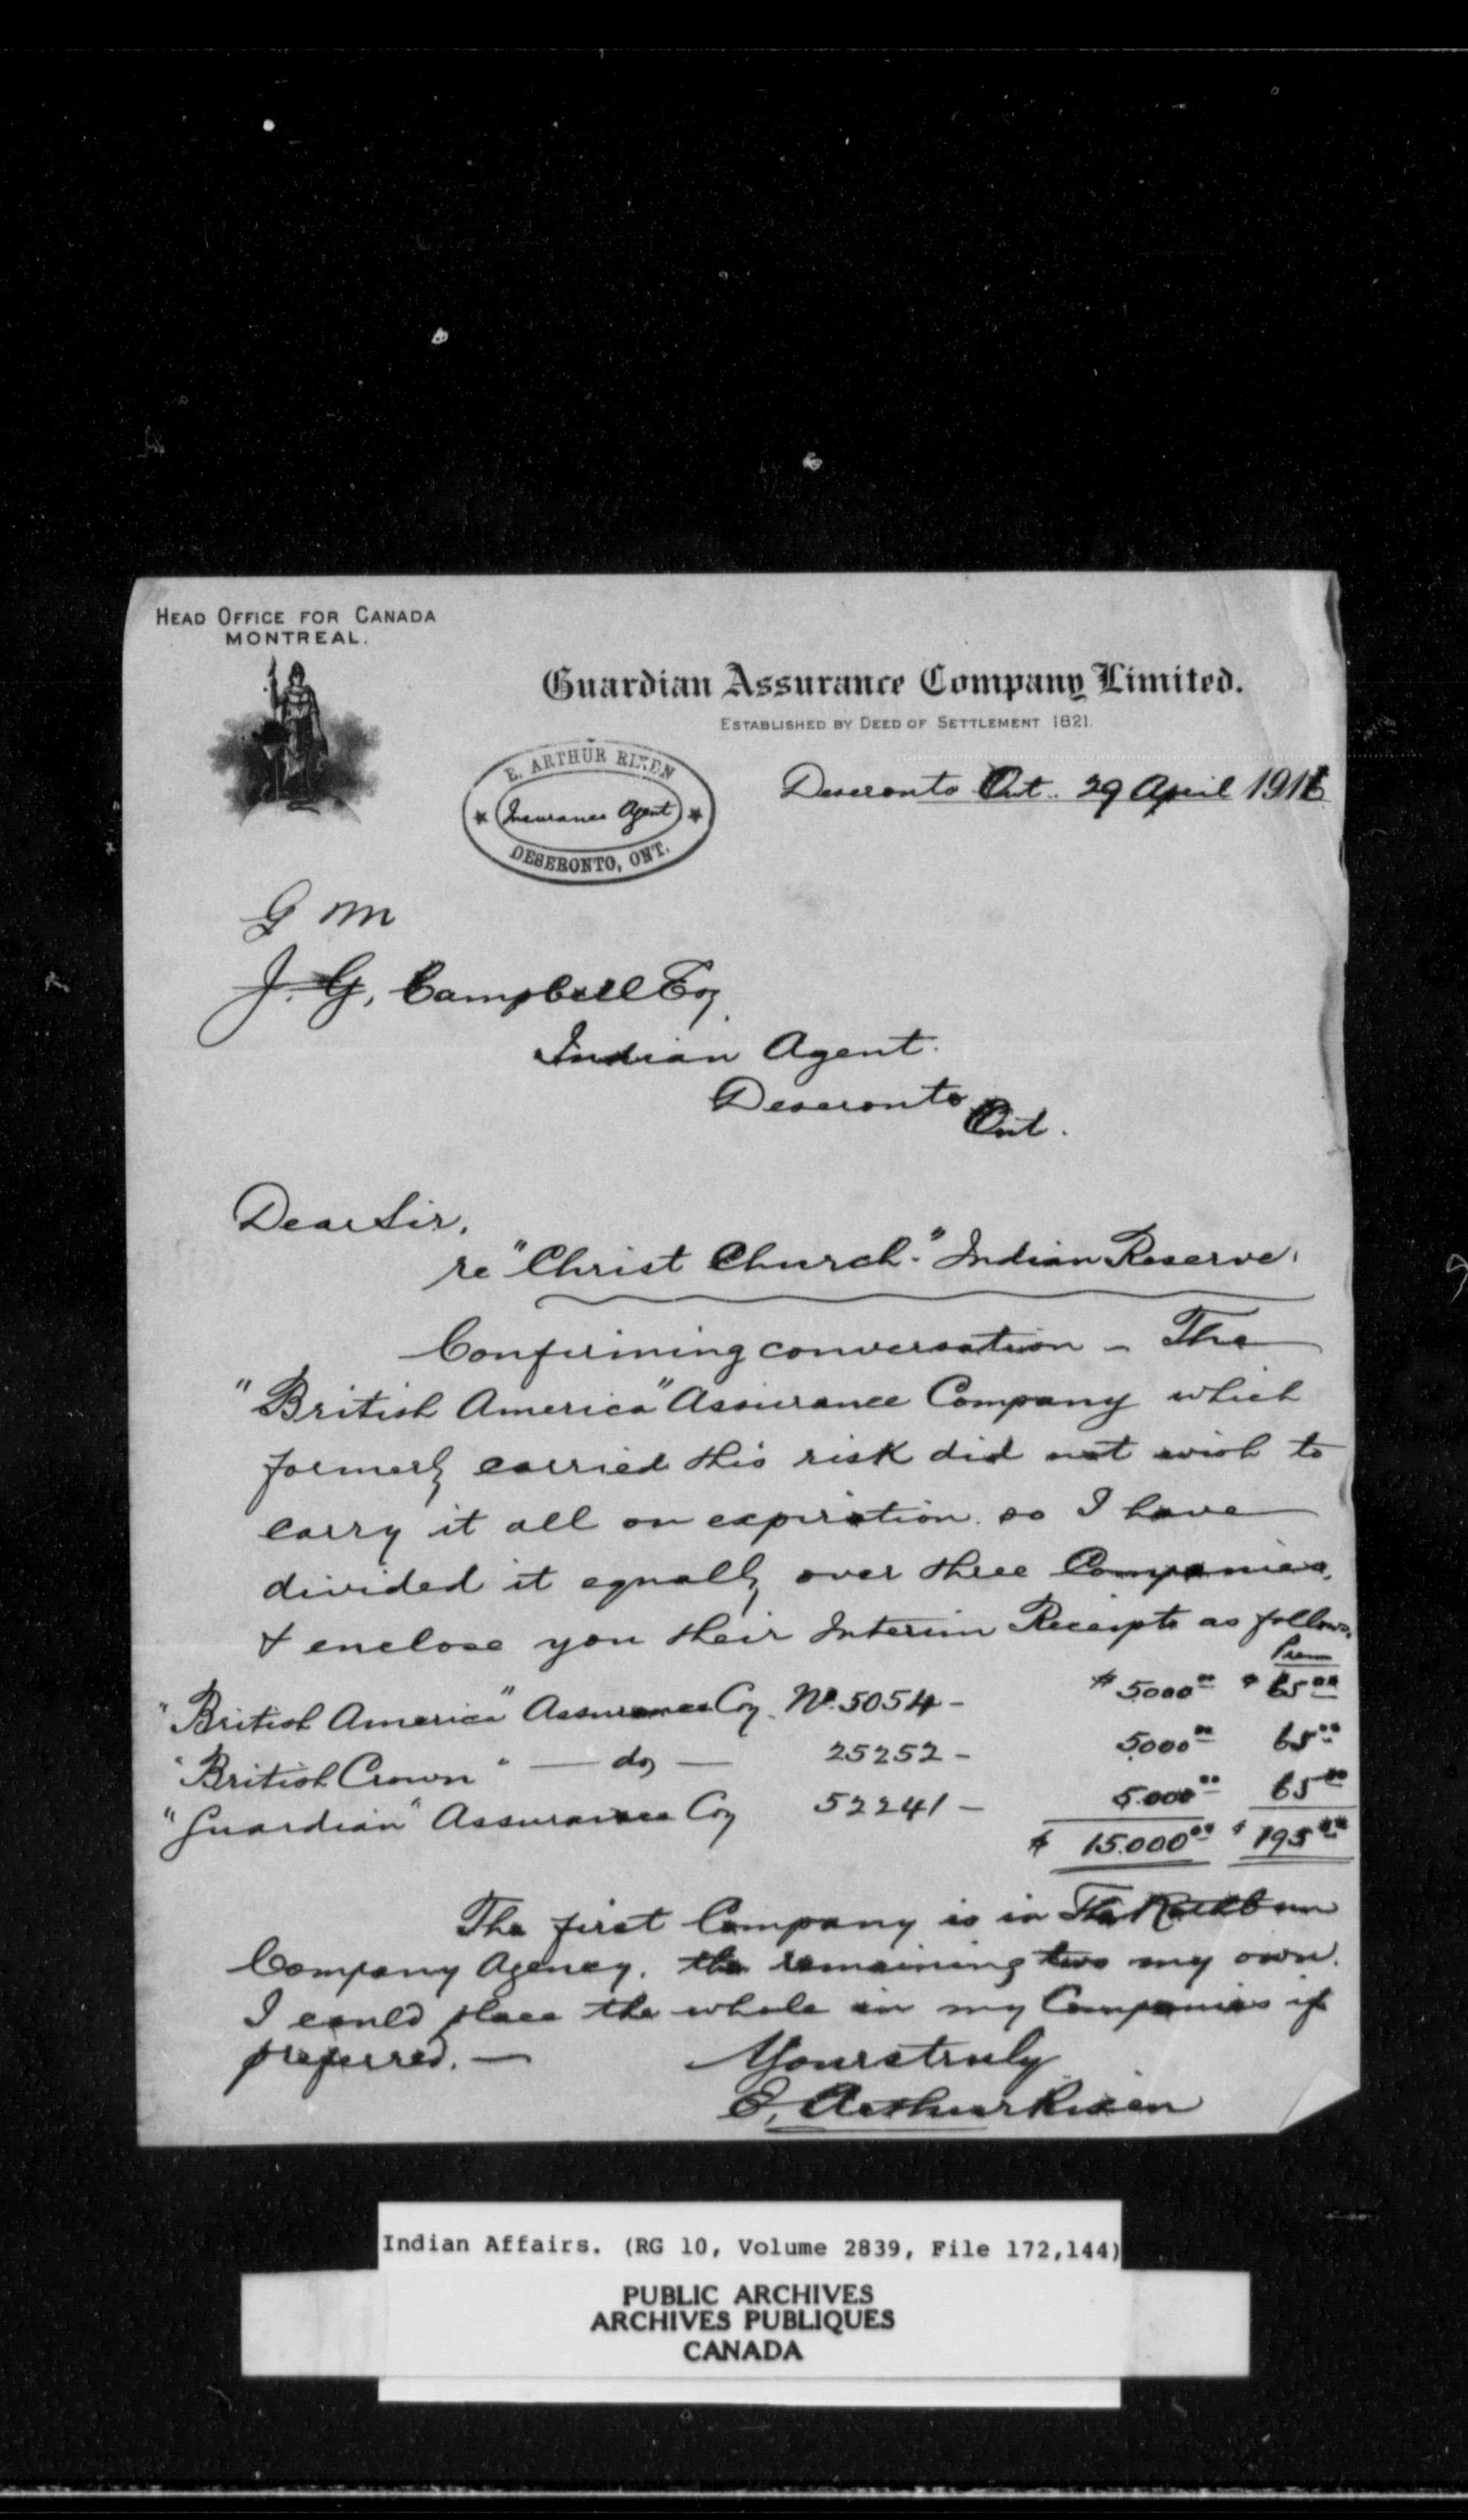 HEAD OFFICE FOR CANADA
MONTREAL.
Guardian Assurance Company Limited.
ESTABLISHED BY DEED OF SETTLEMENT 1821.
E. ARTHUR RIXEN
Insurance Agent
DESERONTO, ONT.
Deseronto Ont. 29 April 1916
G M
J. G. Campbell Esq
Indian Agent.
Deseronto
Ont.
Dear Sir,
re "Christ Church." Indian Reserve.
Confirming conversation - The
"British America" Assurance Company which
formerly carried this risk did not wish to
carry it all on expiration so I have
divided it equally over three Companies,
& enclose you their Interim Receipts as follows.
Prem
"British America" Assurance Coy. No. 5054 - $ 5000.00 $ 65.00
"British Crown" — do — 25252 - 5000.00 65.00
"Guardian" Assurance Coy 52241 - 5.000.00 65.00
$ 15.000.00 $ 195.00
The first Company is in The Rathbun
Company Agency. the remaining two my own.
I could place the whole in my Companies if
preferred. —
Yours truly
E. Arthur Rixen
Indian Affairs. (RG 10, Volume 2839, File 172,144)
PUBLIC ARCHIVES
ARCHIVES PUBLIQUES
CANADA